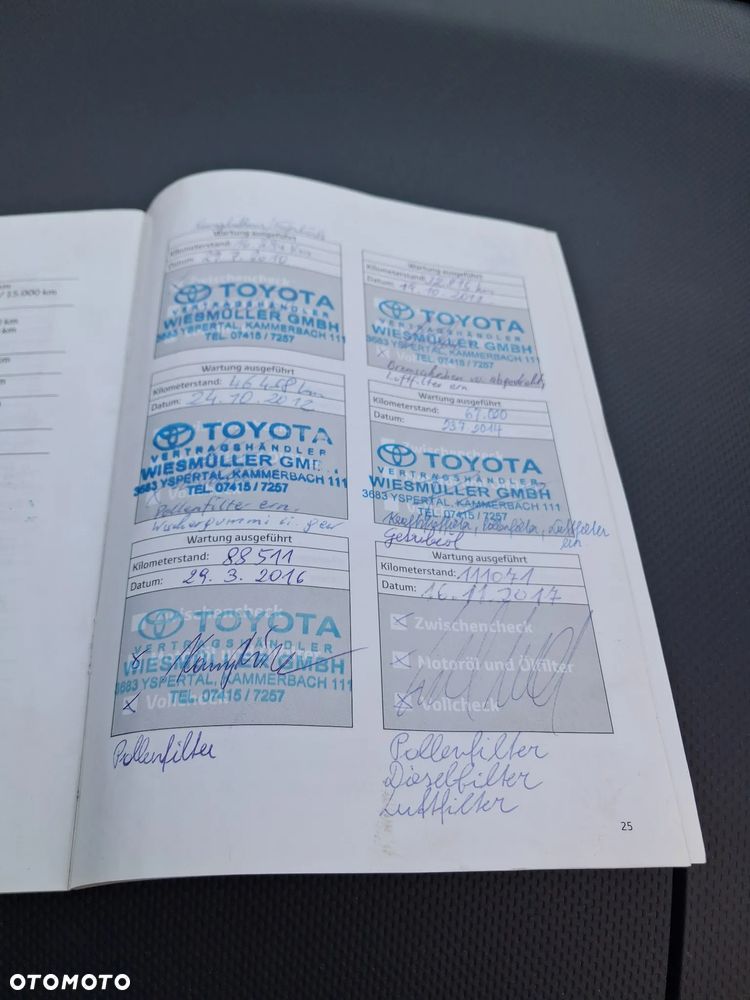 km
/ 15.000 km
km
km
km
Wartung ausgeführt
Kilometerstand:
Datum: 29.7.2010
Zwischencheck
TOYOTA
VERTRAGSHÄNDLER
WIESMÜLLER GMBH
3683 YSPERTAL, KAMMERBACH 111
TEL. 07415 / 7257
Wartung ausgeführt
Kilometerstand: km
Datum: 19.10.
TOYOTA
VERTRAGSHÄNDLER
WIESMÜLLER GMBH
3683 YSPERTAL, KAMMERBACH 111
TEL. 07415 / 7257
Luftfilter ern.
Wartung ausgeführt
Kilometerstand: km
Datum: 24.10.2012
TOYOTA
VERTRAGSHÄNDLER
WIESMÜLLER GMB
3683 YSPERTAL, KAMMERBACH 111
TEL. 07415 / 7257
Pollenfilter ern.
Wartung ausgeführt
Kilometerstand: 67.000
Datum: 2014
Zwischencheck
TOYOTA
VERTRAGSHÄNDLER
WIESMÜLLER GMBH
3683 YSPERTAL, KAMMERBACH 111
TEL. 07415 / 7257
Luftfilter
Getriebeöl
Wartung ausgeführt
Kilometerstand: 88511
Datum: 29.3.2016
Zwischencheck
TOYOTA
VERTRAGSHÄNDLER
WIESMÜLLER GMBH
3683 YSPERTAL, KAMMERBACH 111
TEL. 07415 / 7257
Vollcheck
Pollenfilter
Wartung ausgeführt
Kilometerstand: 111071
Datum: 16.11.2017
Zwischencheck
Motoröl und Ölfilter
Vollcheck
Pollenfilter
Dieselfilter
Luftfilter
25
OTOMOTO